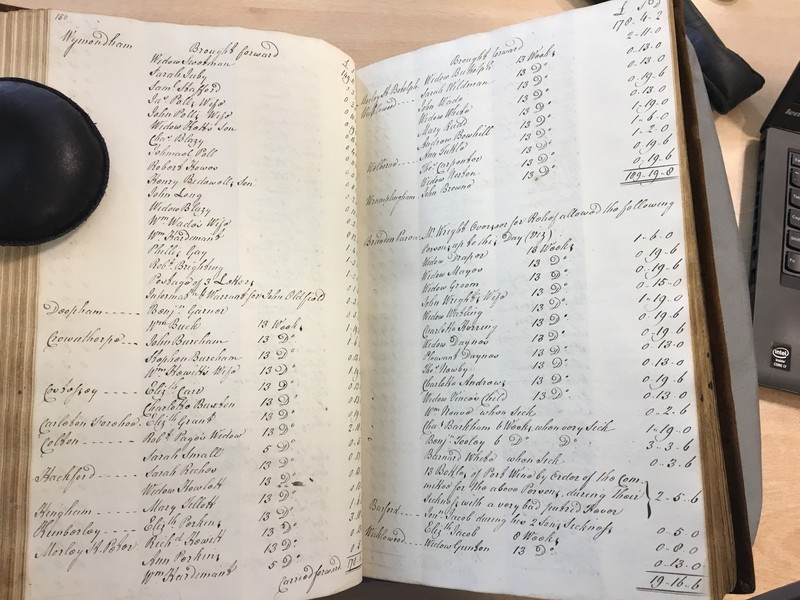 160
Wymondham
Brought forward
Widow Scotman
Sarah Suby
Sam.l Stafford
Ja.s Polls Wife
John Polls Wife
Widow Holts Son
Cha.s Blazy
Ishmael Poll
Robert Howes
Henry Bidewells Son
John Long
Widow Blazy
W.m Wade's Wife
W.m Hardiment
Phillis Gay
Rob.t Brighting
Postage of 3 Letters
Inform.n & Warrant for John Oldfield
Deopham Benj.n Garner
W.m Buck 13 Weeks
Crownthorpe John Burcham 13 D.o
Stephen Burcham 13 D.o
W.m Howitts Wife 13 D.o
Cossey Eliz.th Carr 13 D.o
Charlotte Buxton 13 D.o
Carleton Forehoe Eliz.th Grant 13 D.o
Colton Rob.t Pages Widow 13 D.o
Sarah Small 5 D.o
Hackford Sarah Riches 13 D.o
Widow Howlett 13 D.o
Hingham Mary Tillott 13 D.o
Kimberley Eliz.th Perkins 13 D.o
Morley St. Peter Rich.d Howitt 13 D.o
Ann Perkins 13 D.o
W.m Hardiment 5 D.o
Carried forward
£ S D
Brought forward 178-4-2
Morley St. Botolph Widow Buttolph 13 Weeks 2-11-0
Sarah Wildman 13 D.o 0-13-0
John Wade 13 D.o 0-13-0
Widow Whits 13 D.o 0-19-6
Mary Kidd 13 D.o 0-13-0
Andrew Bowhill 13 D.o 1-19-0
Ann Tuttle 13 D.o 1-6-0
Welborne Tho.s Carpenter 13 D.o 1-2-0
Widow Norton 13 D.o 0-19-6
Wramplingham John Browne 13 D.o 0-19-6
189-19-8
Brandon Parva M.r Wright Overseer for Relief allowed the following
Persons up to this Day (Viz)
Widow Draper 13 Weeks 1-6-0
Widow Mayes 13 D.o 0-19-6
Widow Groom 13 D.o 0-19-6
John Wrights Wife 13 D.o 0-15-0
Widow Watling 13 D.o 1-19-0
Charlotte Herring 13 D.o 0-19-6
Widow Daynes 13 D.o 0-19-6
Pleasant Daynes 13 D.o 0-13-0
Tho.s Newby 13 D.o 0-13-0
Charlotte Andrews 13 D.o 0-19-6
Widow Vinces Child 13 D.o 0-13-0
W.m Neave when Sick 0-2-6
Cha.s Barkham 6 Weeks when very Sick 1-19-0
Benj.n Tooley 6 D.o D.o 3-3-6
Barnard White when Sick 0-3-6
13 Bottles of Port Wine by Order of the Com
mittee for the above Persons, during their
Sickness with a very bad putrid Fever 2-5-6
Barford Jon.n Jacob during his 2 Sons Sickness 0-5-0
Eliz.th Jacob 8 Weeks 0-8-0
Wicklewood Widow Gunton 13 D.o 0-13-0
19-16-6
intel
CORE i7